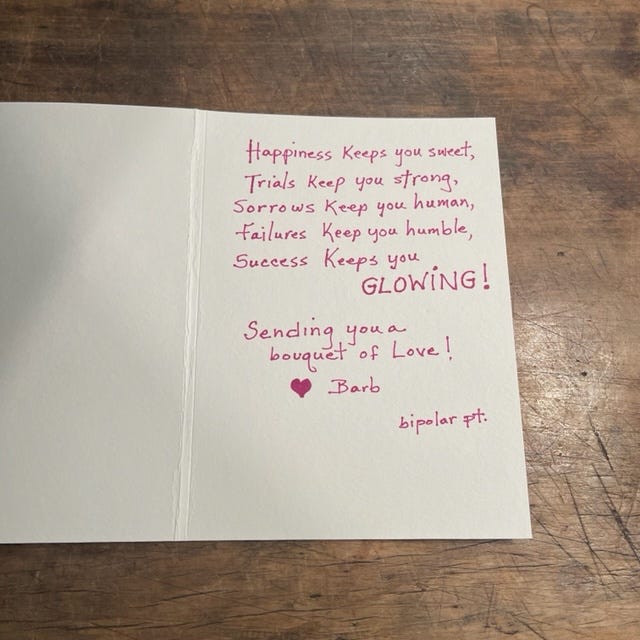 Happiness Keeps you sweet,
Trials Keep you strong,
Sorrows Keep you human,
Failures Keep you humble,
Success Keeps you
GLOWiNG!
Sending you a
bouquet of Love!
♥ Barb
bipolar pt.